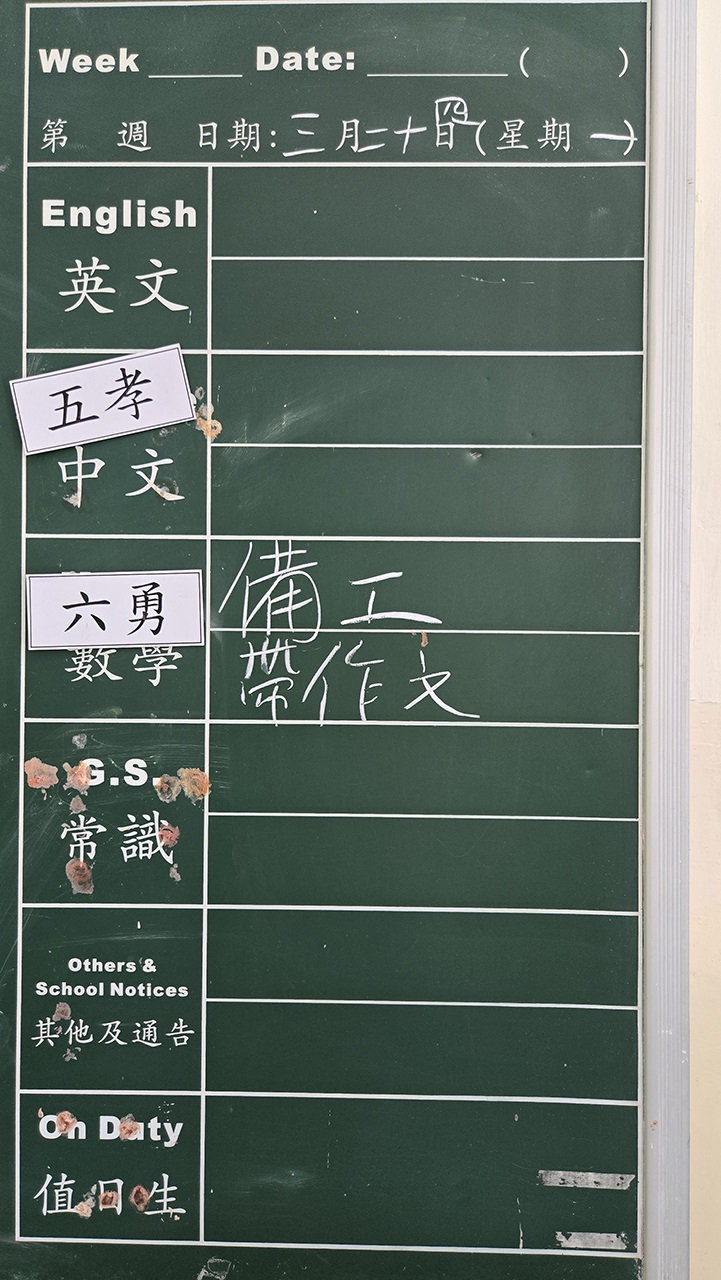 Week ______ Date: __________ ( )
第 週 日期:三月二十四日(星期 一)
English
英文
五孝
中文
六勇 備工
數學 帶作文
G.S.
常識
Others &
School Notices
其他及通告
On Duty
值日生